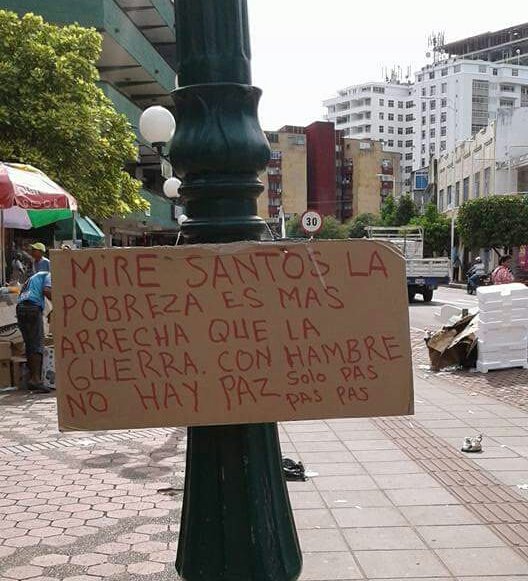 30
MIRE SANTOS LA
POBREZA ES MAS
ARRECHA QUE LA
GUERRA. CON HAMBRE
NO HAY PAZ Solo PAS
PAS PAS